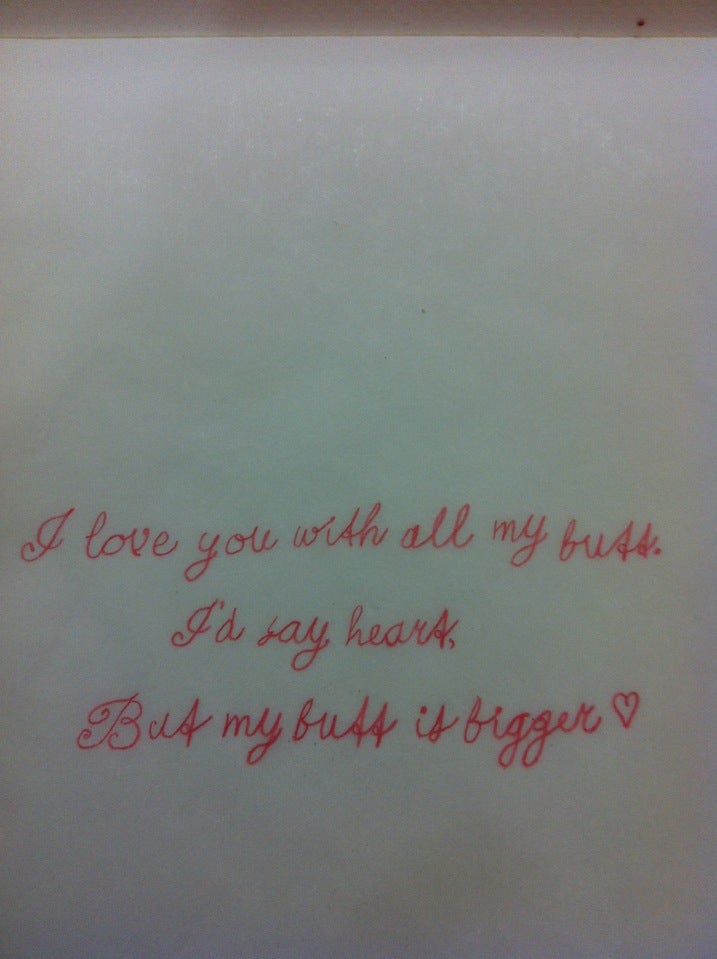 I love you with all my butt.
I'd say heart,
But my butt is bigger ♡